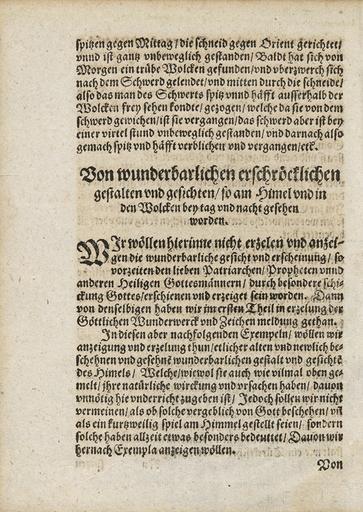 spitzen gegen Mittag / die schneid gegen Orient gerichtet /
vnnd ist gantz vnbeweglich gestanden / Baldt hat sich von
Morgen ein trübe Wolcken gefunden / vnd vberzwerch sich
nach dem Schwerd gelendet / vnd mitten durch die schneide /
also das man des Schwerts spitz vnnd häfft ausserhalb der
Wolcken frey sehen kondte / gezogen / welche da sie von dem
schwerd gewichen / ist sie vergangen / das schwerd aber ist bey
einer virtel stund vnbeweglich gestanden / vnd darnach also
gemach spitz vnd häfft verblichen vnd vergangen / etc.
Von wunderbarlichen erschröcklichen
gestalten vnd gesichten / so am Himel vnd in
den Wolcken bey tag vnd nacht gesehen
worden.
WIr wöllen hierinne nicht erzelen vnd anzei-
gen die wunderbarliche gesicht vnd erscheinung / so
vorzeiten den lieben Patriarchen / Propheten vnnd
anderen Heiligen Gottsmännern / durch besondere schi-
ckung Gottes / erschienen vnd erzeiget sein worden. Dann
von denselbigen haben wir im ersten Theil in erzelung der
Göttlichen Wunderwerck vnd Zeichen meldung gethan.
In diesen aber nachfolgenden Exempeln / wöllen wir
anzeigung vnd erzelung thun / etlicher alten vnd newlich be-
schehnen vnd gesehnē wunderbarlichen gestalt vnd gesichte
des Himels / Welche / wiewol sie auch wie vilmal oben ge-
melt / ihre natürliche wirckung vnd vrsachen haben / dauon
vnnötig hie vnderricht zugeben ist / Jedoch sollen wir nicht
vermeinen / als ob solche vergeblich von Gott beschehen / vñ
als ein kurtzweilig spiel am Himmel gestellt seien / sondern
solche haben allzeit etwas besonders bedeuttet / Dauon wir
hernach Exempla anzeigen wöllen.
Von